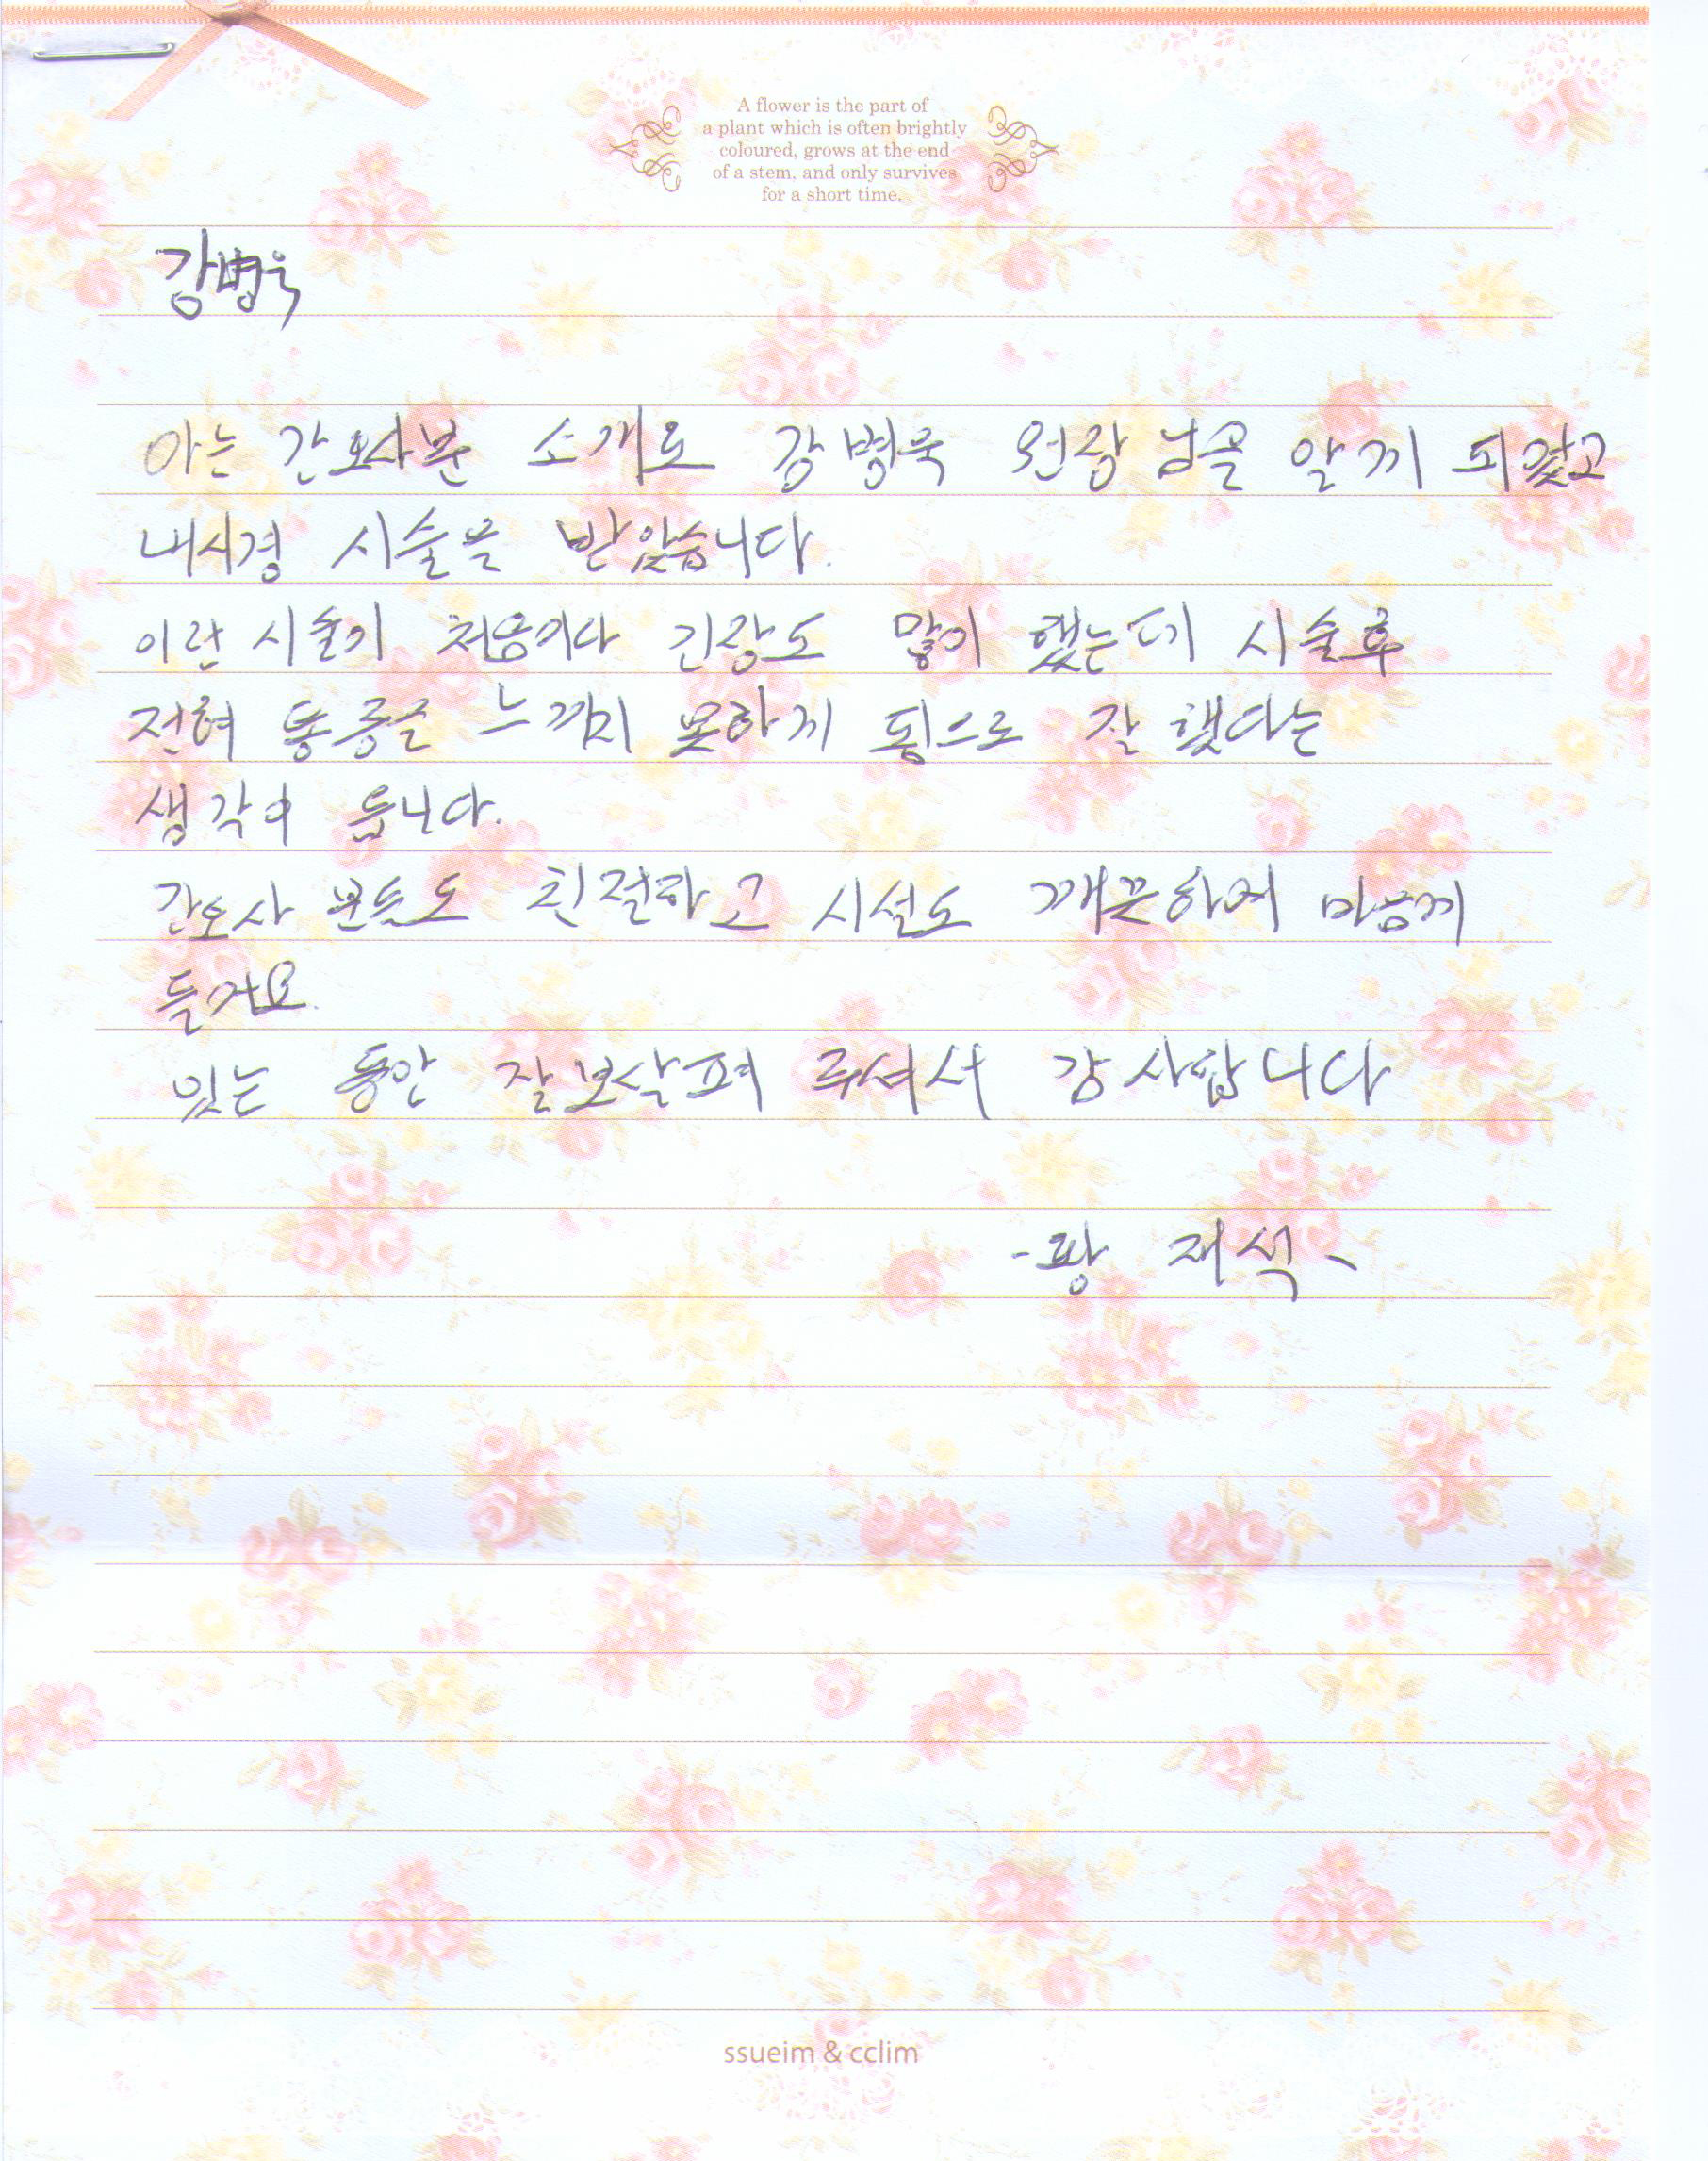 A flower is the part of
a plant which is often brightly
coloured, grows at the end
of a stem, and only survives
for a short time.
강병욱
아는 간호사분 소개로 강병욱 원장님을 알게 되었고
내시경 시술을 받았습니다.
이런 시술이 처음이라 긴장도 많이 했는데 시술후
전혀 통증을 느끼지 못하게 됨으로 잘 했다는
생각이 듭니다.
간호사 분들도 친절하고 시설도 깨끗하여 마음에
들어요.
있는 동안 잘 보살펴 주셔서 감사합니다
- 황 재석 -
ssueim & cclim